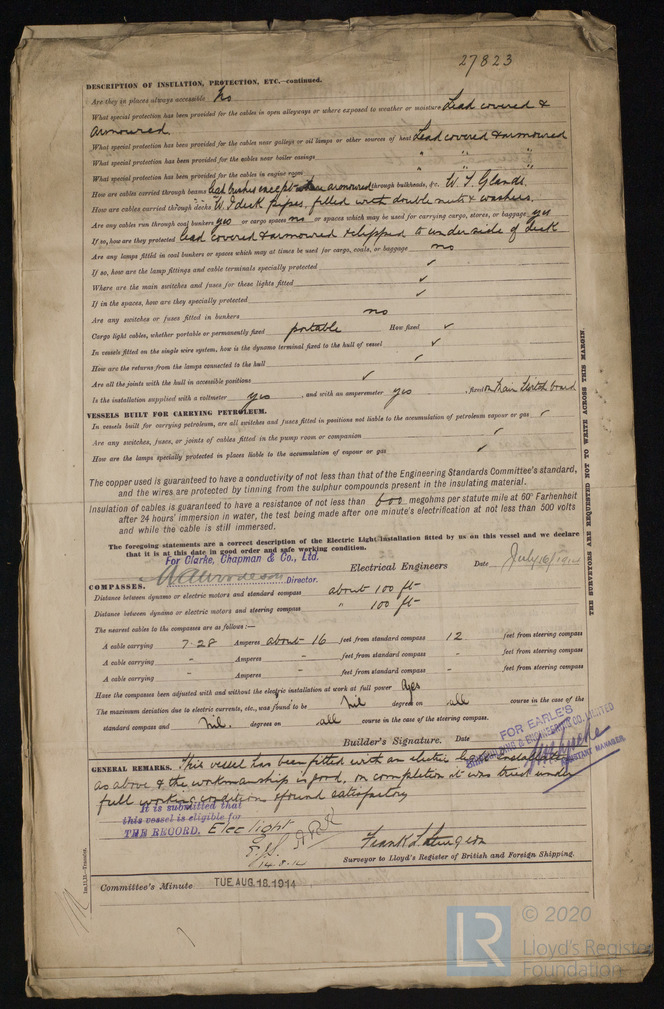 27823
DESCRIPTION OF INSULATION, PROTECTION, ETC.—continued.
Are they in places always accessible
What special protection has been provided for the cables in open alleyways or where exposed to weather or moisture Lead covered &
armoured
What special protection has been provided for the cables near galleys or oil lamps or other sources of heat Lead covered & armoured
What special protection has been provided for the cables near boiler casings " " "
What special protection has been provided for the cables in engine room " " "
How are cables carried through beams lead bushes except where armoured through bulkheads, &c. W. T. Glands.
How are cables carried through decks W. I deck pipes, filled with double nuts & washers.
Are any cables run through coal bunkers yes or cargo spaces no or spaces which may be used for carrying cargo, stores, or baggage yes
If so, how are they protected lead covered & armoured & clipped to underside of deck
Are any lamps fitted in coal bunkers or spaces which may at times be used for cargo, coals, or baggage no
If so, how are the lamp fittings and cable terminals specially protected ✓
Where are the main switches and fuses for these lights fitted ✓
If in the spaces, how are they specially protected ✓
Are any switches or fuses fitted in bunkers no
Cargo light cables, whether portable or permanently fixed portable How fixed ✓
In vessels fitted on the single wire system, how is the dynamo terminal fixed to the hull of vessel ✓
How are the returns from the lamps connected to the hull ✓
Are all the joints with the hull in accessible positions ✓
Is the installation supplied with a voltmeter yes , and with an amperemeter yes , fixed on main switch board
VESSELS BUILT FOR CARRYING PETROLEUM.
In vessels built for carrying petroleum, are all switches and fuses fitted in positions not liable to the accumulation of petroleum vapour or gas ✓
Are any switches, fuses, or joints of cables fitted in the pump room or companion ✓
How are the lamps specially protected in places liable to the accumulation of vapour or gas ✓
The copper used is guaranteed to have a conductivity of not less than that of the Engineering Standards Committee's standard,
and the wires are protected by tinning from the sulphur compounds present in the insulating material.
Insulation of cables is guaranteed to have a resistance of not less than 600 megohms per statute mile at 60° Farhenheit
after 24 hours' immersion in water, the test being made after one minute's electrification at not less than 500 volts
and while the cable is still immersed.
The foregoing statements are a correct description of the Electric Light Installation fitted by us on this vessel and we declare
that it is at this date in good order and safe working condition.
For Clarke, Chapman & Co., Ltd.
Director. Electrical Engineers Date July 16/1914
COMPASSES.
Distance between dynamo or electric motors and standard compass about 100 ft
Distance between dynamo or electric motors and steering compass " 100 ft
The nearest cables to the compasses are as follows:—
A cable carrying 7.28 Amperes about 16 feet from standard compass 12 feet from steering compass
A cable carrying - Amperes - feet from standard compass - feet from steering compass
A cable carrying - Amperes - feet from standard compass - feet from steering compass
Have the compasses been adjusted with and without the electric installation at work at full power yes
The maximum deviation due to electric currents, etc., was found to be Nil degrees on all course in the case of the
standard compass and Nil. degrees on all course in the case of the steering compass.
FOR EARLE'S
SHIPBUILDING & ENGINEERING CO. LIMITED
ASSISTANT MANAGER.
Builder's Signature. Date
GENERAL REMARKS. This vessel has been fitted with an electric light installation
as above & the workmanship is good, on completion it was tried under
full working conditions & found satisfactory
It is submitted that
this vessel is eligible for
THE RECORD. Elec light
14.8.14
Surveyor to Lloyd's Register of British and Foreign Shipping.
Committee's Minute TUE. AUG. 18. 1914
THE SURVEYORS ARE REQUESTED NOT TO WRITE ACROSS THIS MARGIN.
LR
© 2020
Lloyd's Register
Foundation